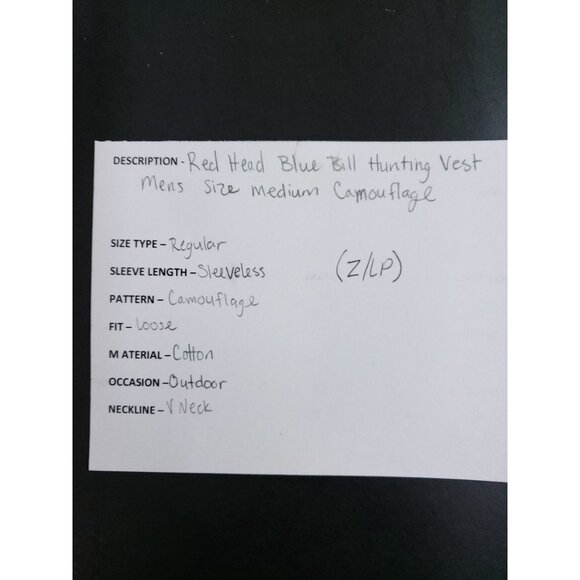 DESCRIPTION - Red Head Blue Bill Hunting Vest
Mens Size medium Camouflage
SIZE TYPE - Regular
SLEEVE LENGTH - Sleeveless
(Z/LP)
PATTERN - Camouflage
FIT - Loose
MATERIAL - Cotton
OCCASION - Outdoor
NECKLINE - V Neck